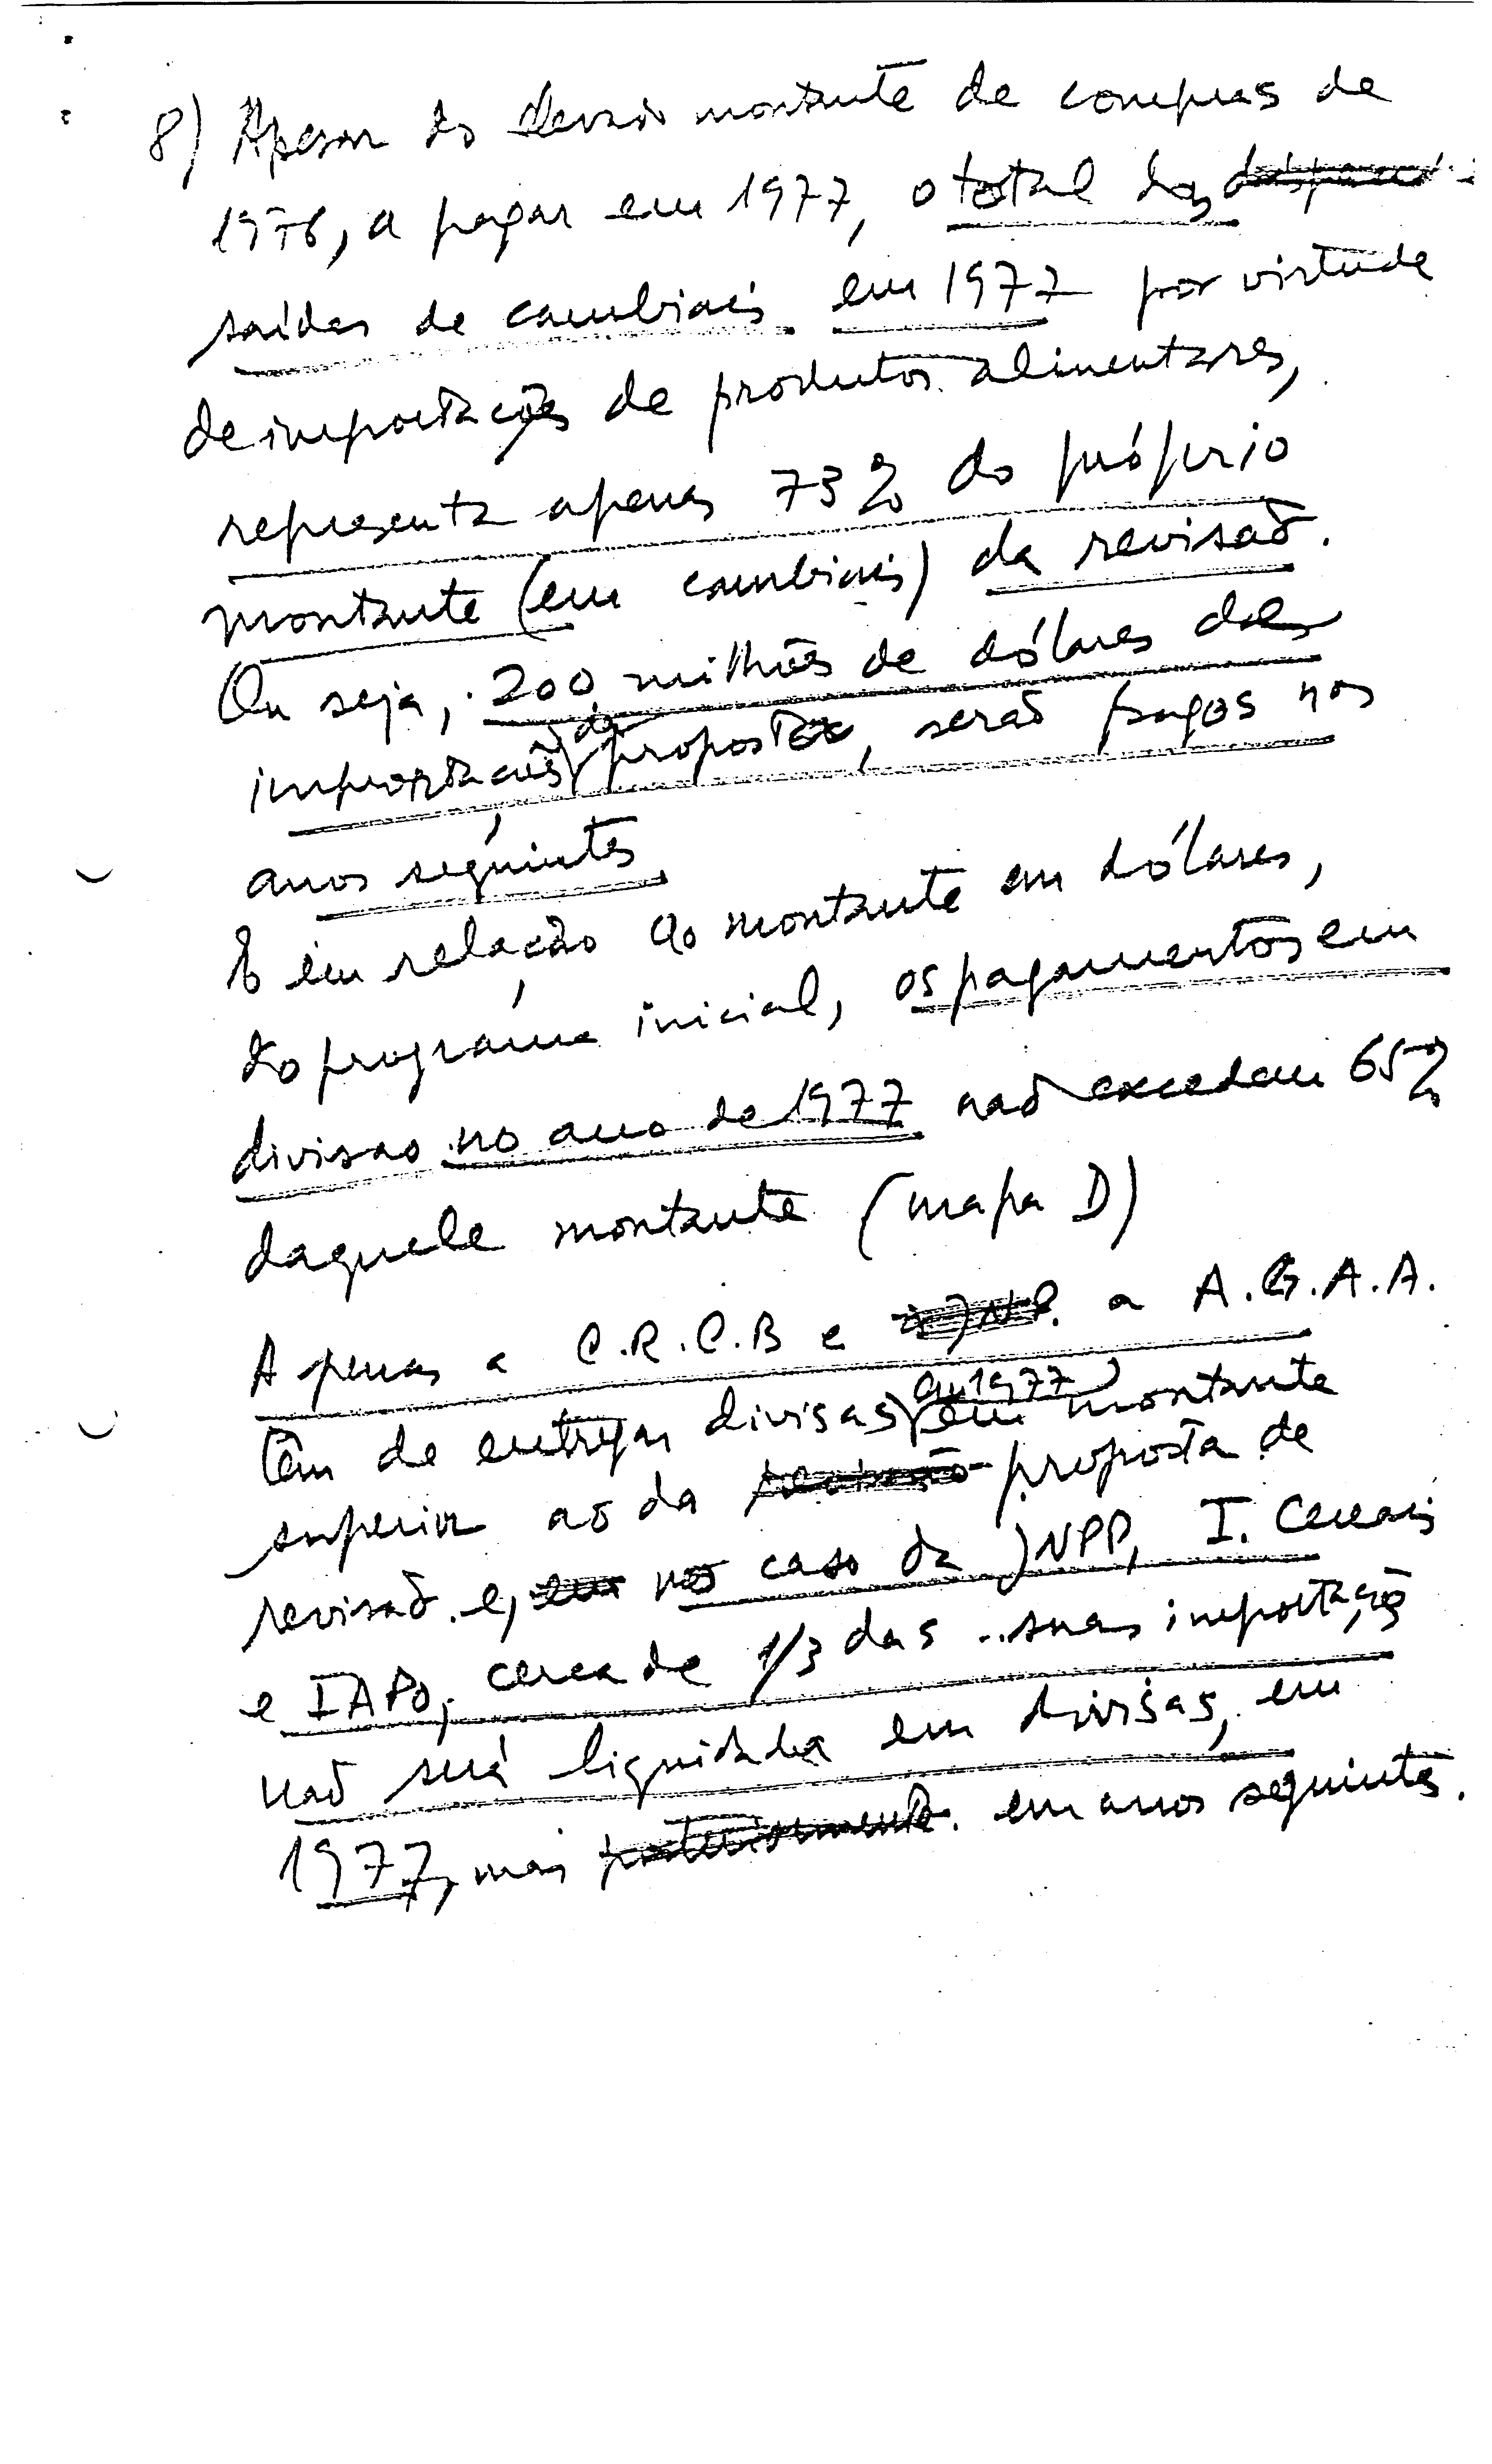 8) Apesar do elevado montante de compras de
1976, a pagar em 1977, o total das
saídas de cambiais em 1977 por virtude
de importações de produtos alimentares,
representa apenas 73% do próprio
montante (em cambiais) da revisão.
Ou seja, 200 milhões de dólares das
importações da proposta, serão pagos nos
anos seguintes
E em relação ao montante em dólares,
do programa inicial, os pagamentos em
divisas no ano de 1977 não excedem 65%
daquele montante (mapa D)
Apenas a C.R.C.B e a A.G.A.A.
têm de entregar divisas (em 1977) em montante
superior ao da proposta de
revisão. e, no caso da JNPP, I. Cereais
e IAPO, cerca de 1/3 das suas importações
não será liquidada em divisas, em
1977, mas em anos seguintes.